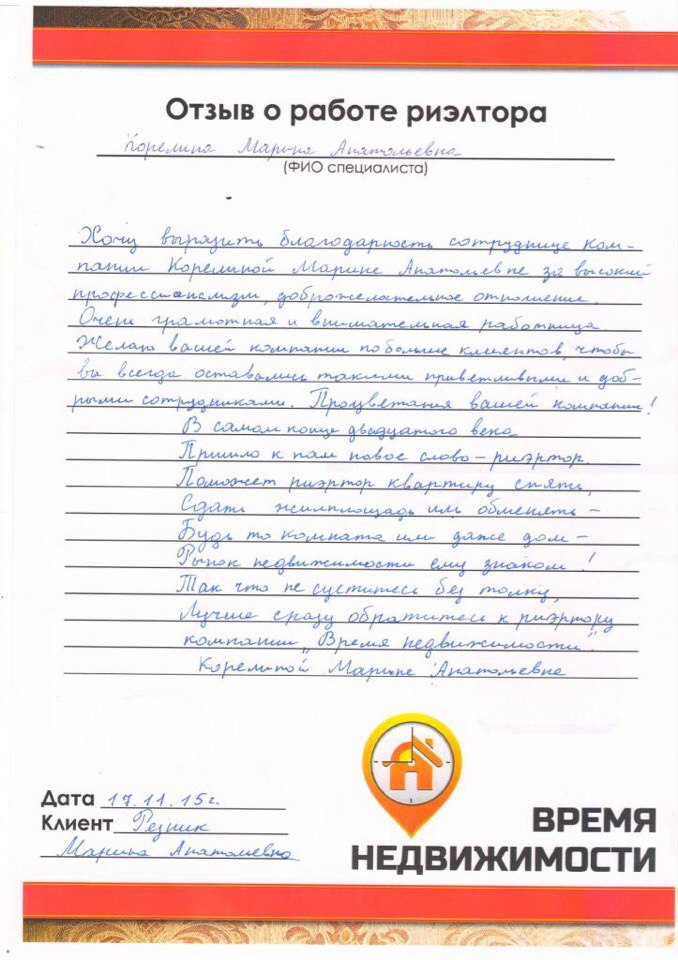 Отзыв о работе риэлтора
Корелина Марина Анатольевна
(ФИО специалиста)
Хочу выразить благодарность сотруднице ком-
пании Корелиной Марине Анатольевне за высокий
профессионализм, доброжелательное отношение.
Очень грамотная и внимательная работница.
Желаю вашей компании побольше клиентов, чтобы
вы всегда оставались такими приветливыми и доб-
рыми сотрудниками. Процветания вашей компании!
В самом конце двадцатого века
Пришло к нам новое слово - риэртор.
Поможет риэртор квартиру снять,
Сдать жилплощадь или обменять -
Будь то комната или даже дом -
Рынок недвижимости ему знаком!
Так что не суетитесь без толку,
Лучше сразу обратитесь к риэртору
компании „Время недвижимости"
Корелиной Марине Анатольевне
Дата 17.11.15г.
Клиент Резник
Марина Анатолиевна
ВРЕМЯ
НЕДВИЖИМОСТИ